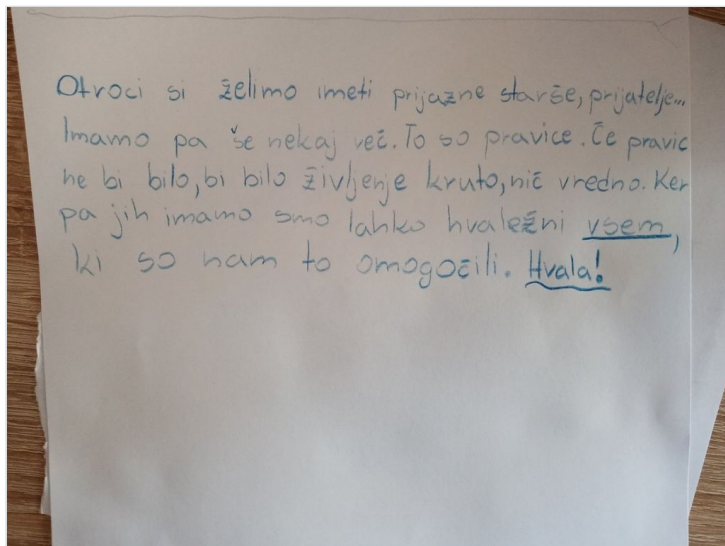 Otroci si želimo imeti prijazne starše, prijatelje...
Imamo pa še nekaj več. To so pravice. Če pravic
ne bi bilo, bi bilo življenje kruto, nič vredno. Ker
pa jih imamo smo lahko hvaležni vsem,
ki so nam to omogočili. Hvala!